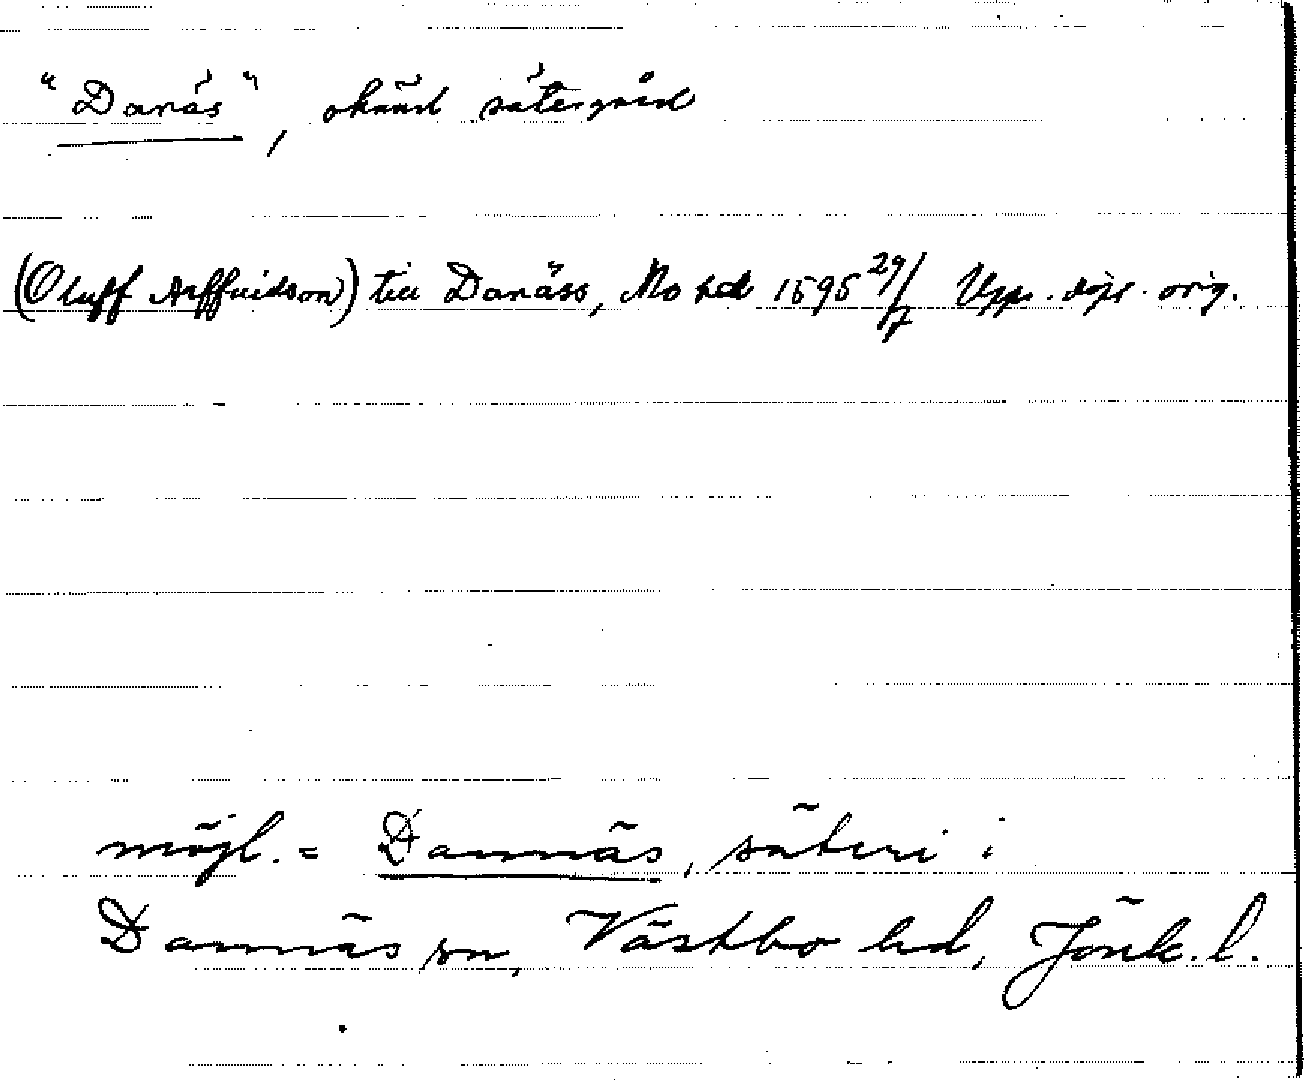 "Danäs", okänd sätesgård
(Oluff Arffuidson) till Danäss, Mo hd 1595 29/7 Upps. döjs. orig.
möjl. = Dannäs, säteri i
Dannäs sn, Västbo hd, Jönk. l.